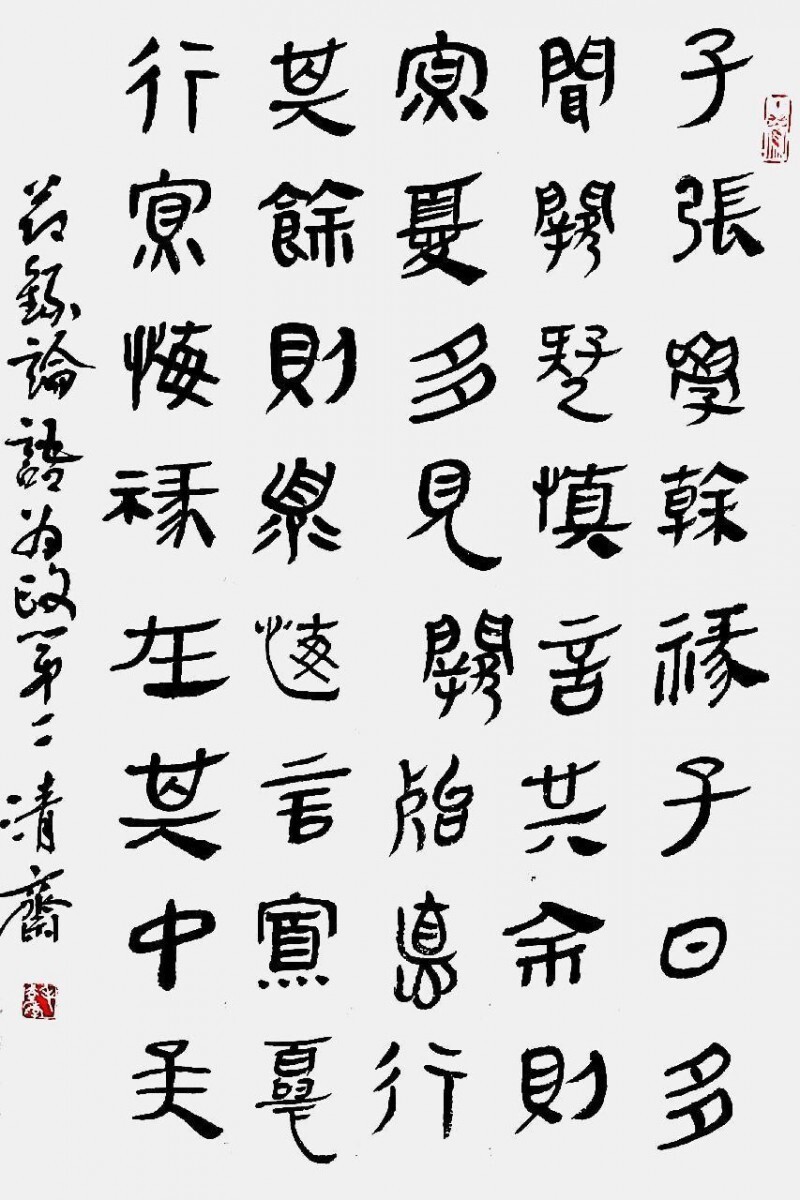 子張學幹祿子曰多
聞闕疑慎言其余則
寡憂多見闕殆慎行
其餘則寡悔言寡憂
行寡悔祿在其中矣
節錄論語為政第二 清齋